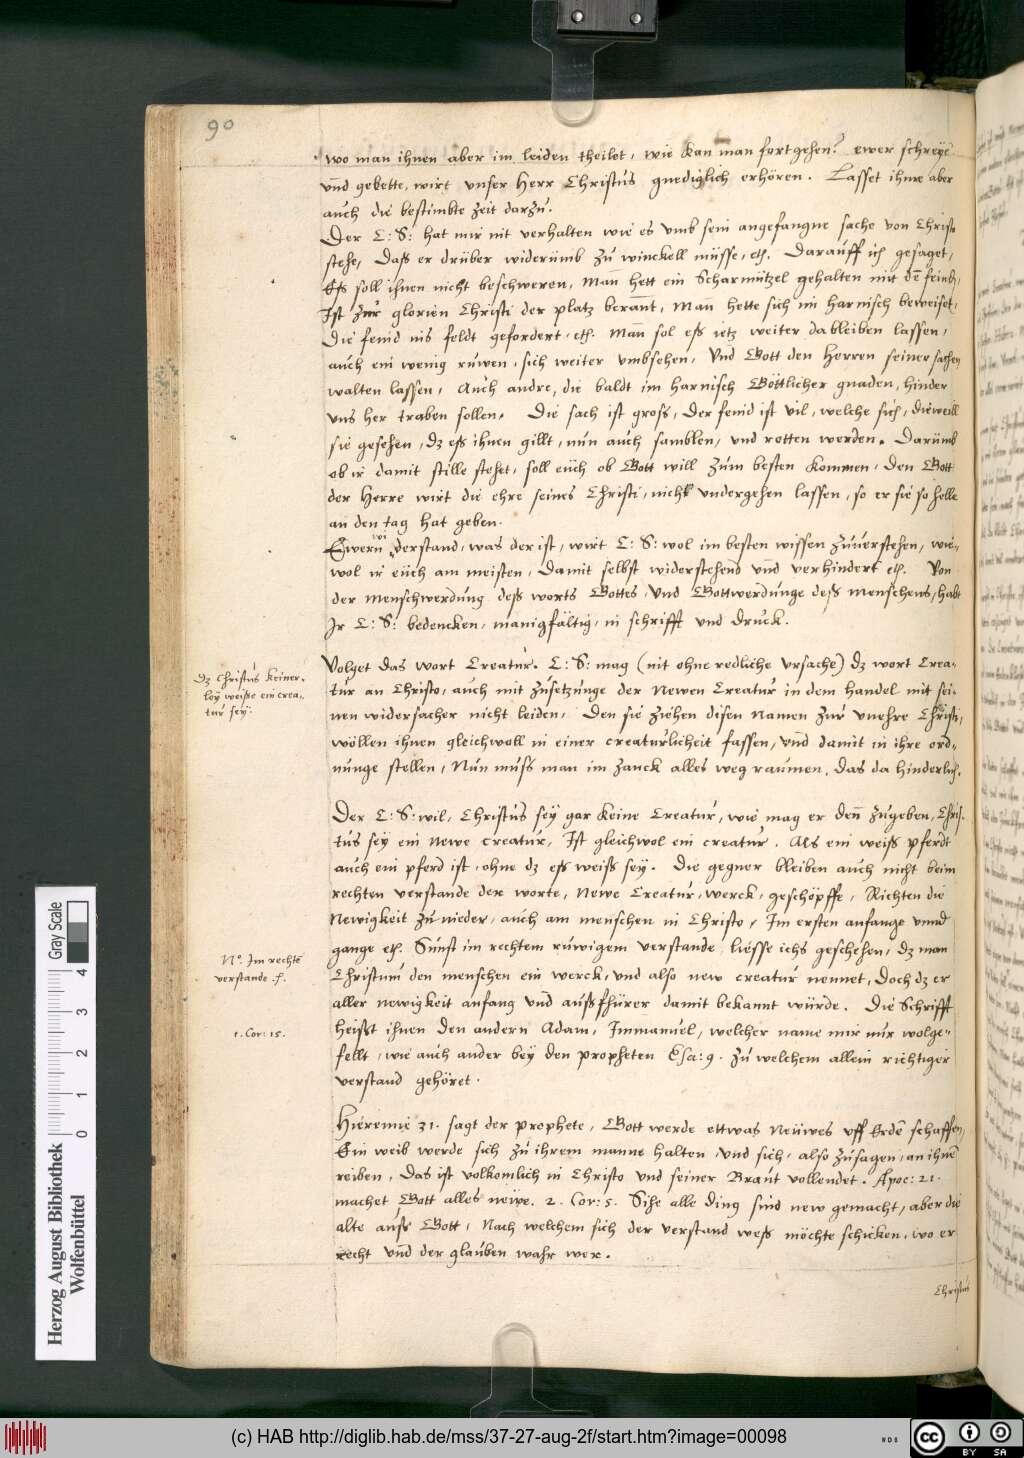 90
wo man ihnen aber im leiden theilet, wie kan man fortgehen? ewer schreyē
vnd gebette, wirt vnser Herr Christus gnediglich erhören. Lasset ihme aber
auch die bestimbte zeit darzu.
Der C: S: hat mir nit verhalten wie es vmb sein angefangne sache von Christo
stehe, Daß er drüber widerumb zu winckell müsse, etc. Darauff ich gesaget,
Eß soll ihnen nicht beschweren, Mañ hett ein Scharmützel gehalten mit dē feind,
Ist zur glorien Christi der platz berant, Mañ hette sich im harnisch beweiset,
Die feind ins feldt gefordert, etc. Mañ sol eß ietz weiter dableiben lassen,
auch ein wenig ruwen, sich weiter vmbsehen, Vnd Gott den Herren seiner sachen
walten lassen, Auch andre, die baldt im harnisch Göttlicher gnaden, hinder
vns her traben sollen. Die sach ist gross, Der feind ist vil, welche sich, dieweill
sie gesehen, dz eß ihnen gillt, nun auch samblen, vnd rotten werden. Darumb
ob ir damit stille stehet, soll euch ob Gott will zum besten kommen, Den Gott
der Herre wirt die ehre seines Christi, nicht vndergehen lassen, so er sie so helle
an den tag hat geben.
Ewern widerstand, was der ist, wirt C: S: wol im besten wissen zuuerstehen, wie-
wol ir euch am meisten, Damit selbst widerstehend vnd verhindert etc. Von
der Menschwerdung deß worts Gottes, Vnd Gottwerdunge deß Menschens, habt
Ir C: S: bedencken, manigfältig, in schrifft vnd druck.
Volget das wort Creatur. C: S: mag (nit ohne redliche vrsache) dz wort Crea-
tur an Christo, auch mit zusetzunge der Newen Creatur in dem handel mit sei-
nen widersacher nicht leiden, Den sie ziehen disen Namen zur vnehre Christi,
wöllen ihnen gleichwoll in einer creaturlicheit fassen, vnd damit in ihre ord-
nunge stellen, Nun muss man im zanck alles weg raumen, das da hinderlich.
Dz Christus keiner-
ley weisse ein crea-
tur sey.
Der C: S: wil, Christus sey gar keine Creatur, wie mag er deñ zugeben, Chris-
tus sey ein Newe creatur, Ist gleichwol ein creatur. Als ein weiß pferdt
auch ein pferd ist, ohne dz eß weiß sey. Die gegner bleiben auch nicht beim
rechten verstande der worte, Newe Creatur, werck, geschöpffe, Richten die
Newigkeit zu nieder, auch am menschen in Christo, Im ersten anfange vnnd
gange etc. Sunst im rechtem ruwigem verstande, liesse ichs geschehen, dz man
Christum den menschen ein werck, vnd also new creatur nennet, Doch dz er
aller newigkeit anfang vnd außfhürer damit bekannt würde. Die Schrifft
heißt ihnen den andern Adam, Immanuel, welcher name mir nur wolge-
fellt, wie auch ander bey den propheten Esa: 9. zu welchem allein richtiger
verstand gehöret.
Nō. Im rechtē
verstande .f.
1. Cor: 15.
Hieremie 31. sagt der prophete, Gott werde ettwas Neuwes vff Erdē schaffen,
Ein weib werde sich zu ihrem manne halten vnd sich, also zusagen, an ihnē
reiben, Das ist volkomlich in Christo vnd seiner Braut vollendet. Apoc: 21.
machet Gott alles newe. 2. Cor: 5. Sihe alle ding sind new gemacht, aber die
alte auß Gott, Nach welchem sich der verstand weß möchte schicken, wo er
recht vnd der glauben wahr wer.
Christus
Herzog August Bibliothek
Wolfenbüttel
0 1 2 3 4
Gray Scale
(c) HAB http://diglib.hab.de/mss/37-27-aug-2f/start.htm?image=00098
WDB
cc BY SA